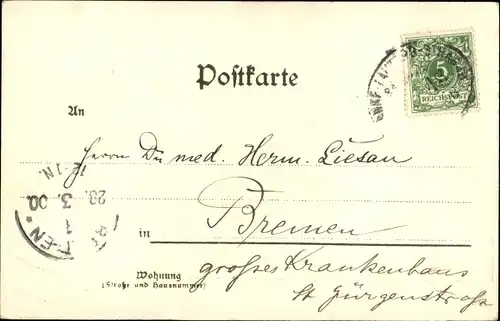 Postkarte
5
REICHSPOST
An
Herrn Dr med. Herm. Liesau
in Bremen
Wohnung
(Straße und Hausnummer)
grosses Krankenhaus
St Jürgenstrasse
28.
3. 00.
1